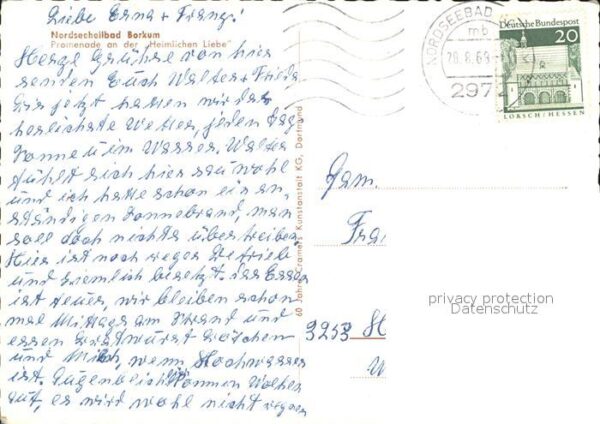 Liebe Erna + Franz!
Nordseeheilbad Borkum
Promenade an der „Heimlichen Liebe"
Herzl Grüße von hier
senden Euch Walter + Frieda
Bis jetzt hatten wir das
herlichste Wetter, jeden Tag
Sonne u im Wasser. Walter
fühlt sich hier sau wohl
und ich hatte schon ein an,
ständigen Sonnenbrand, man
soll doch nichts übertreiben
Hier ist noch reger Betrieb
und ziemlich besetzt. das Essen
ist teuer, wir bleiben schon
mal Mittags am Strand und
essen Bratwurst Brötchen
und Milch, wenn Hochwasser
ist. Augenblicklich kommen Wolken
auf, es wird wohl nicht regnen
60 Jahre Cramers Kunstanstalt KG, Dortmund
NORDSEEBAD
mb
28.8.69
2972
Deutsche Bundespost
20
LORSCH/HESSEN
Fam.
Fra
privacy protection
Datenschutz
3253 H